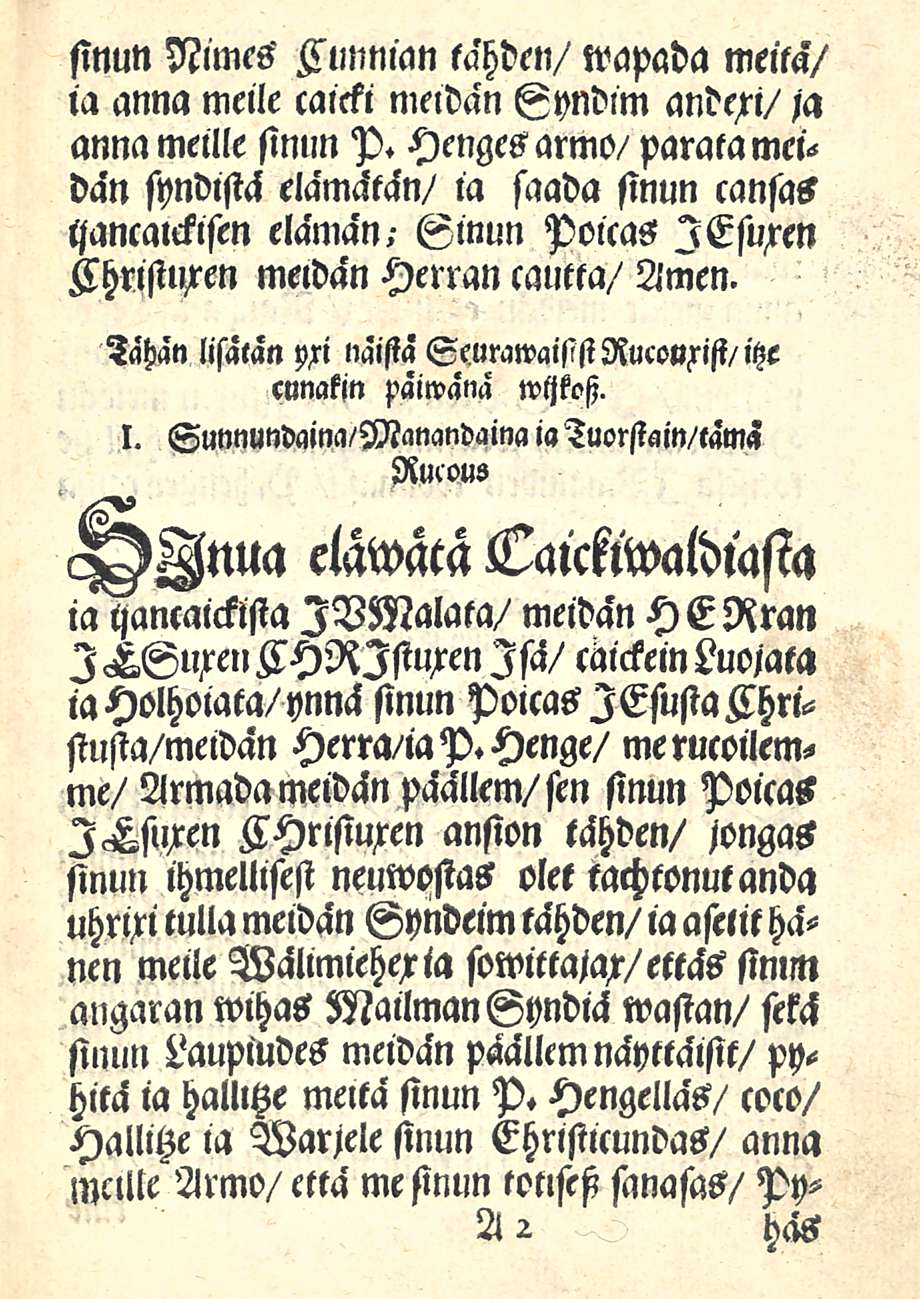 sinun Nimes Cunnian tähden/ wapada meitä/
ia anna meile caicki meidän Syndim andexi/ ja
anna meille sinun P. Henges armo/ parata mei-
dän syndistä elämätän/ ia saada sinun cansas
ijancaickisen elämän; Sinun Poicas JEsuxen
Christuxen meidän Herran cautta/ Amen.
Tähän lisätän yxi näistä Seurawaisist Rucouxist/ itze
cunakin päiwänä wijkoß.
I. Sunnundaina/Manandaina ia Tuorstain/tämä
Rucous
SJnua eläwätä Caickiwaldiasta
ia ijancaickista JVMalata/ meidän HERran
JESuxen CHRJstuxen Jsä/ caickein Luojata
ia Holhoiata/ ynnä sinun Poicas JEsusta Chri-
stusta/meidän Herra/ia P. Henge/ me rucoilem-
me/ Armada meidän päällem/ sen sinun Poicas
JEsuxen CHristuxen ansion tähden/ jongas
sinun ihmellisest neuwostas olet tachtonut anda
uhrixi tulla meidän Syndeim tähden/ ia asetit hä-
nen meile Wälimiehex ia sowittajax/ ettäs sinun
angaran wihas Mailman Syndiä wastan/ sekä
sinun Laupiudes meidän päällem näyttäisit/ py-
hitä ia hallitze meitä sinun P. Hengelläs/ coco/
Hallitze ia Warjele sinun Christicundas/ anna
meille Armo/ että me sinun totiseß sanasas/ Py-
A 2 häs